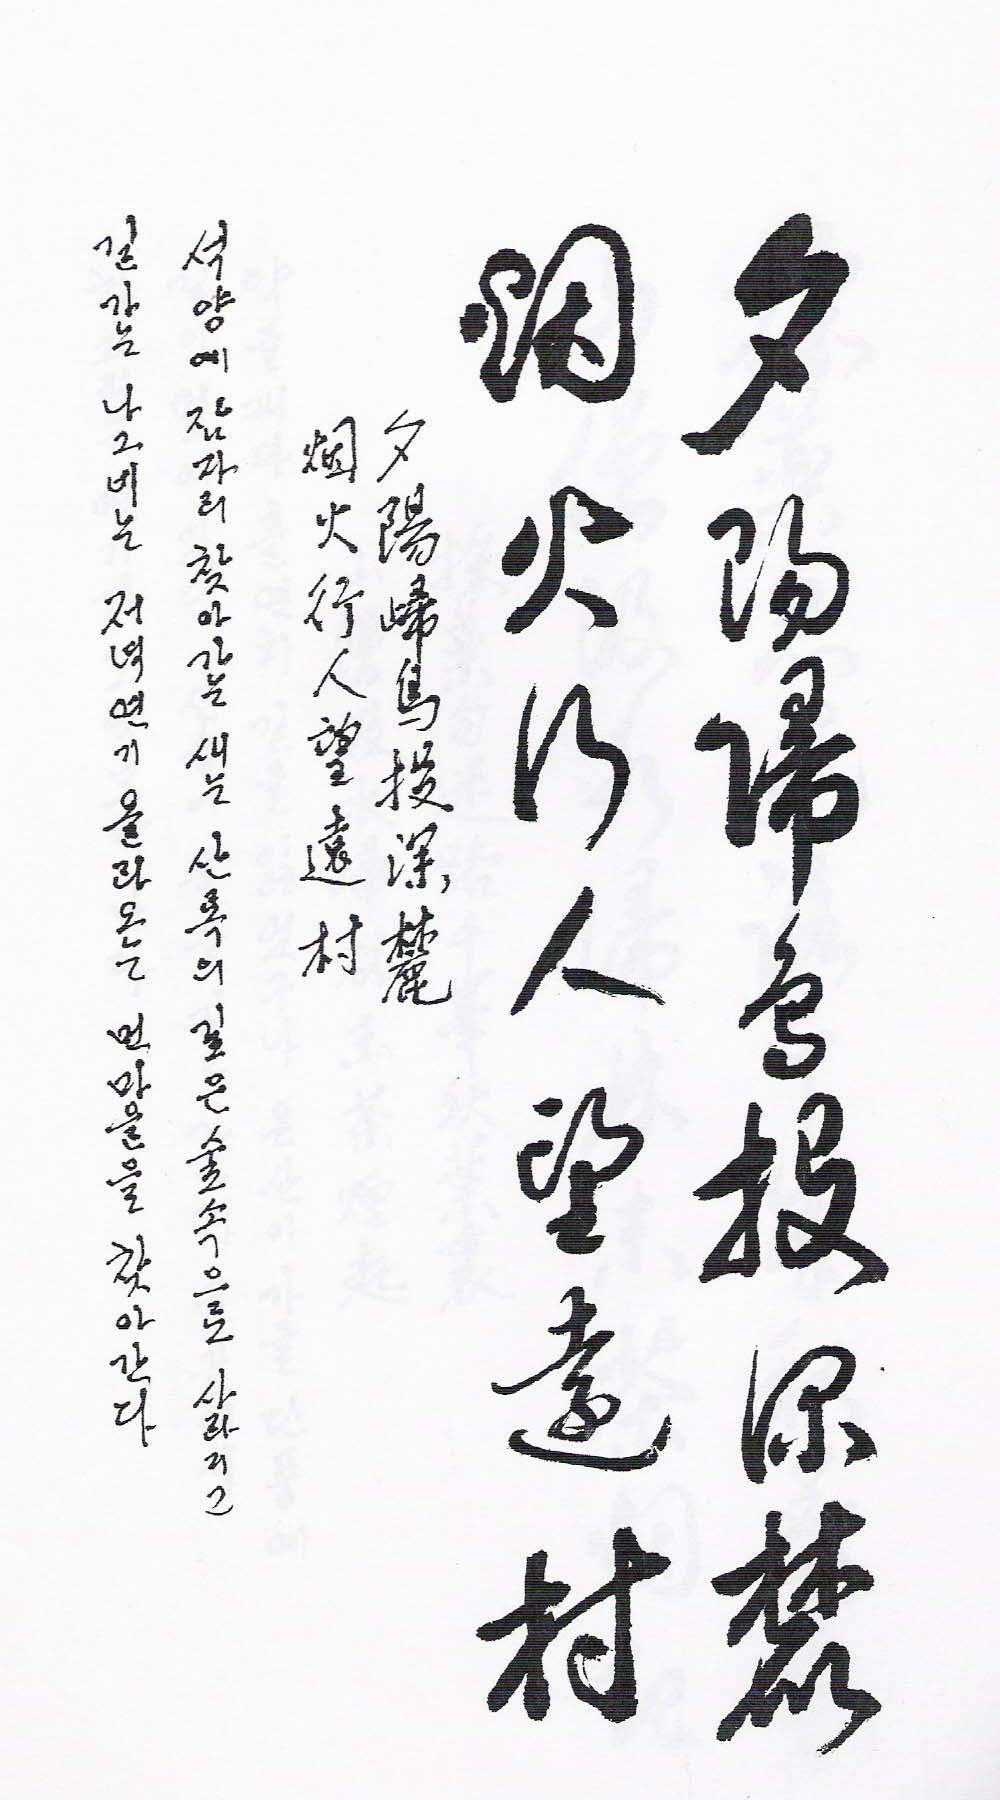 夕陽歸鳥投深麓
烟火行人望遠村
夕陽歸鳥投深麓
烟火行人望遠村
석양에 잠자리 찾아가는 새는 산록의 깊은 숲속으로 사라지고
길가는 나그네는 저녁연기 올라오는 먼마을을 찾아간다